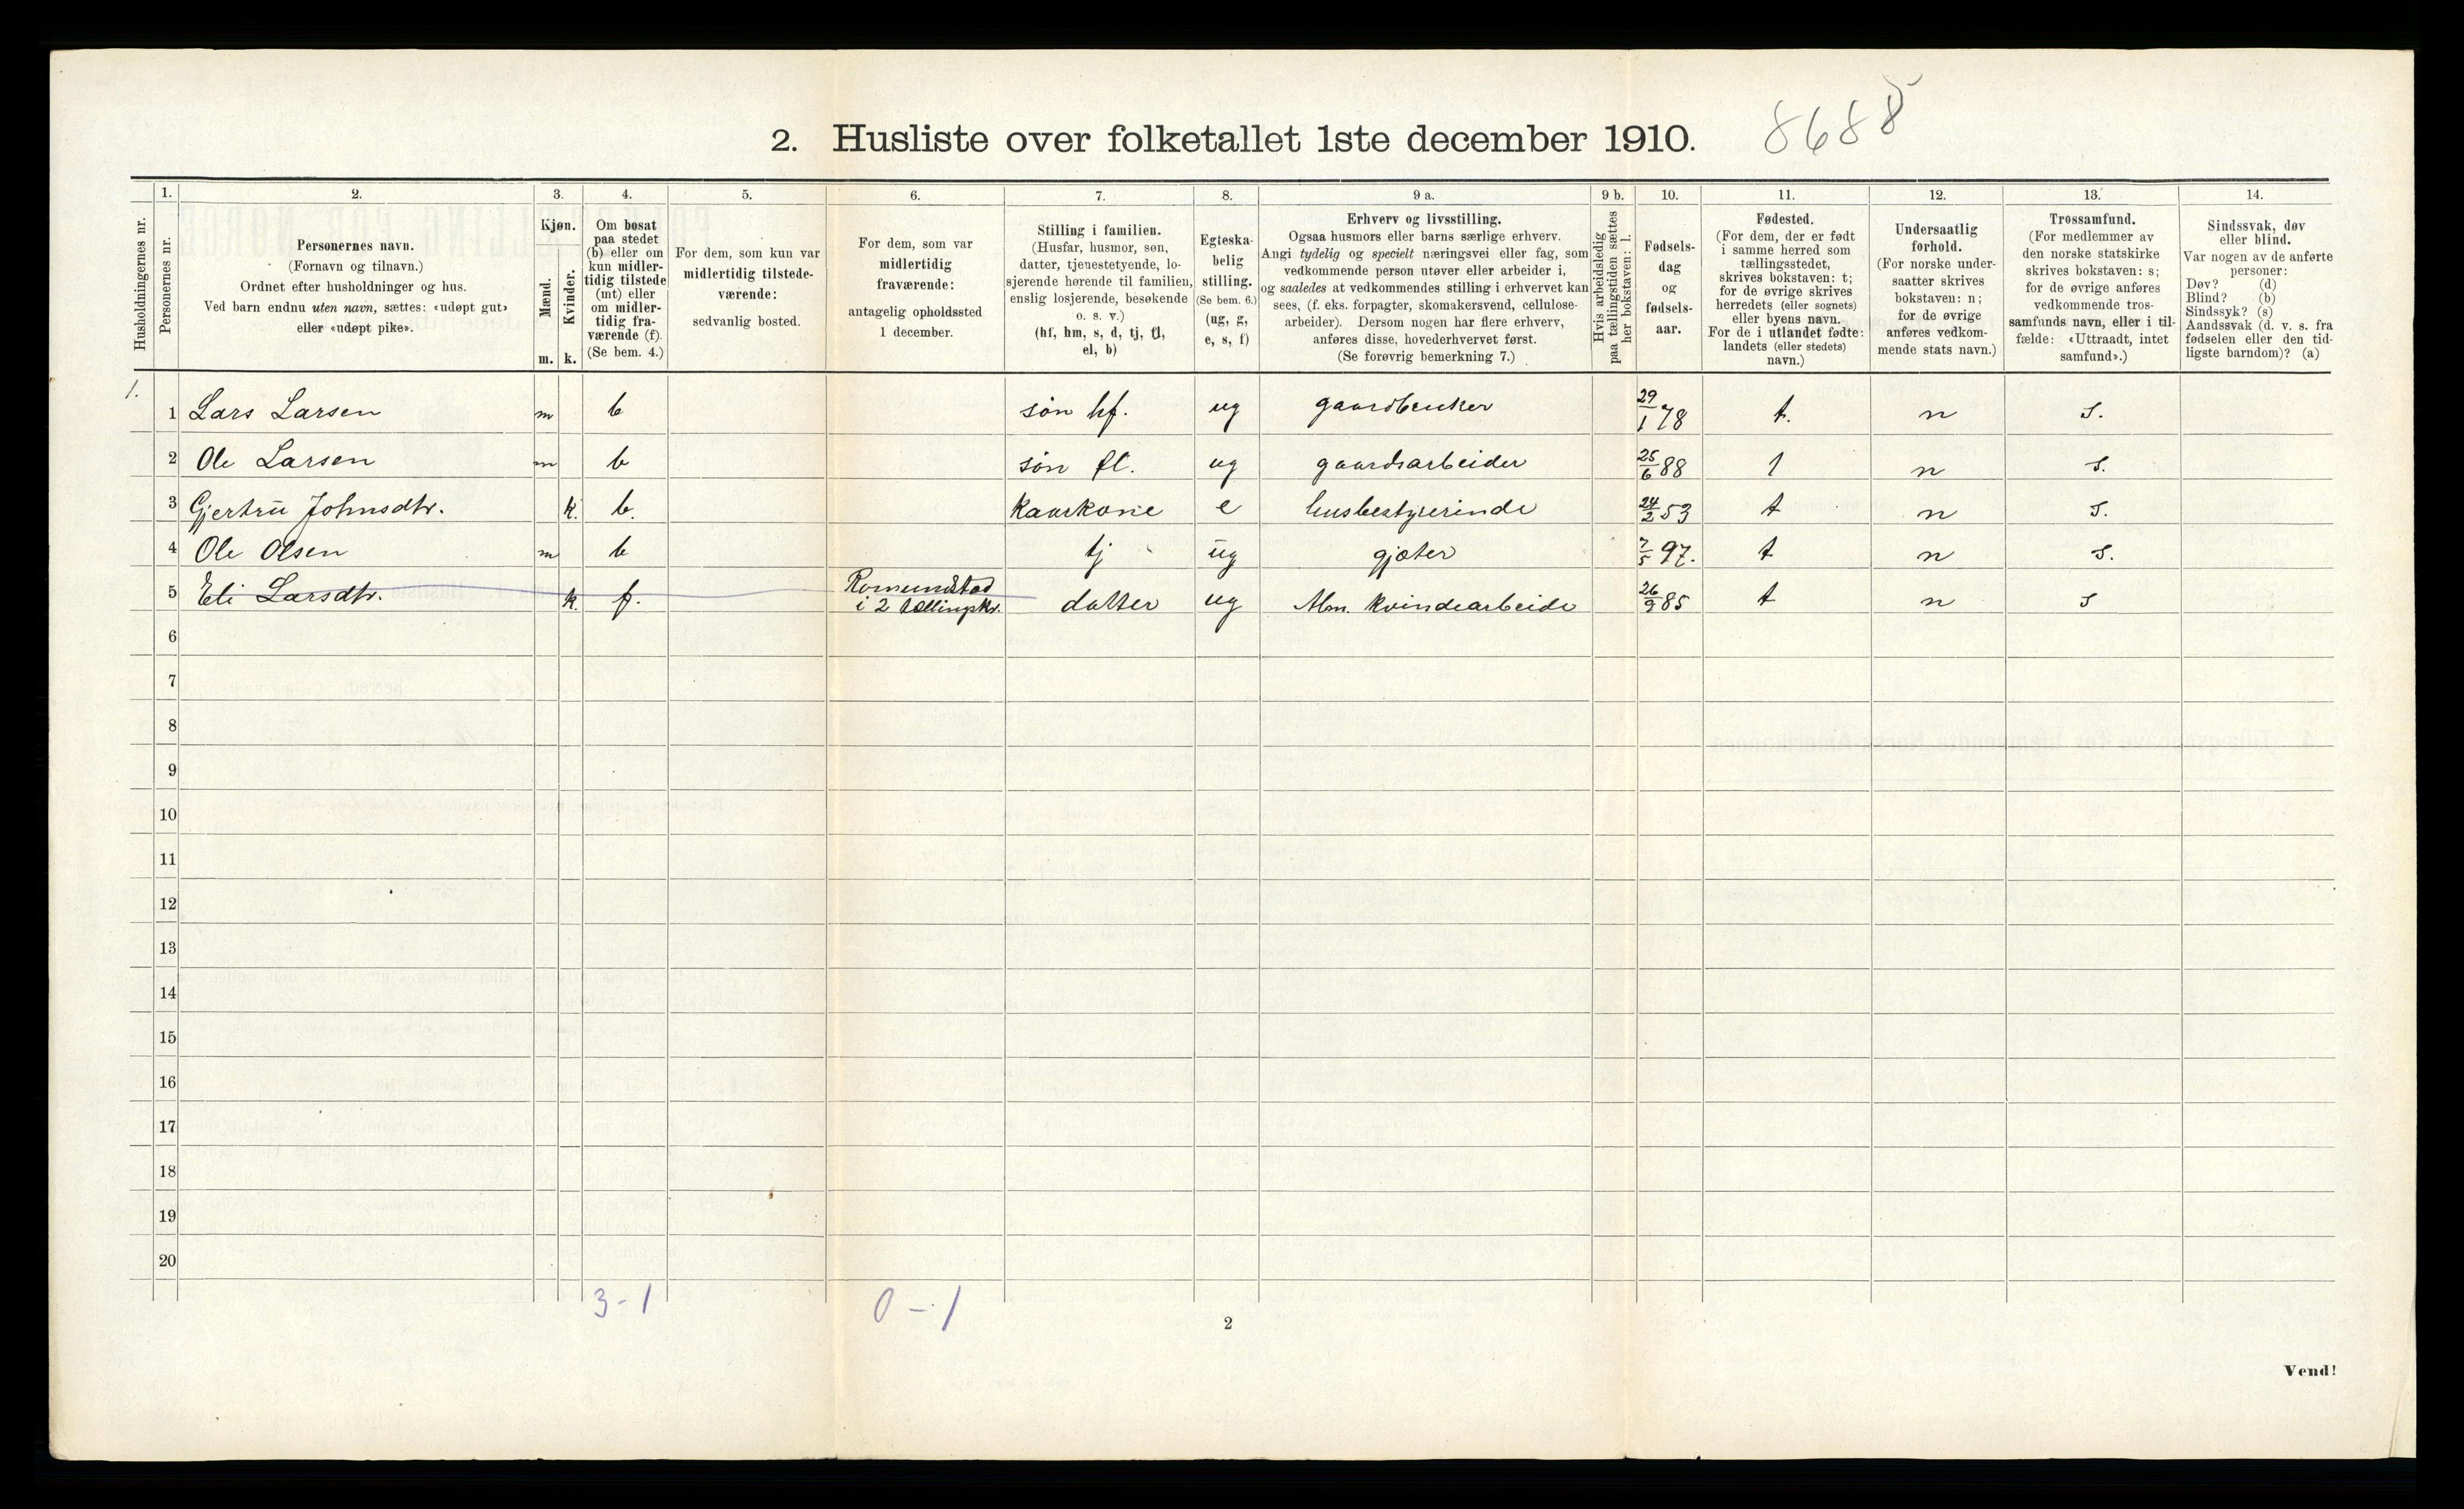 2. Husliste over folketallet 1ste december 1910.
8688
Husholdningernes nr.
1.
Personernes nr.
2.
Personernes navn.
(Fornavn og tilnavn.)
Ordnet efter husholdninger og hus.
Ved barn endnu uten navn, sættes: «udøpt gut»
eller «udøpt pike».
3.
Kjøn.
Mænd.
Kvinder.
m. k.
4.
Om bosat
paa stedet
(b) eller om
kun midler-
tidig tilstede
(mt) eller
om midler-
tidig fra-
værende (f).
(Se bem. 4.)
5.
For dem, som kun var
midlertidig tilstede-
værende:
sedvanlig bosted.
6.
For dem, som var
midlertidig
fraværende:
antagelig opholdssted
1 december.
7.
Stilling i familien.
(Husfar, husmor, søn,
datter, tjenestetyende, lo-
sjerende hørende til familien,
enslig losjerende, besøkende
o. s. v.)
(hf, hm, s, d, tj, fl,
el, b)
8.
Egteska-
belig
stilling.
(Se bem. 6.)
(ug, g,
e, s, f)
9 a.
Erhverv og livsstilling.
Ogsaa husmors eller barns særlige erhverv.
Angi tydelig og specielt næringsvei eller fag, som
vedkommende person utøver eller arbeider i,
og saaledes at vedkommendes stilling i erhvervet kan
sees, (f. eks. forpagter, skomakersvend, cellulose-
arbeider). Dersom nogen har flere erhverv,
anføres disse, hovederhvervet først.
(Se forøvrig bemerkning 7.)
9 b.
Hvis arbeidsledig
paa tællingstiden sættes
her bokstaven: l.
10.
Fødsels-
dag
og
fødsels-
aar.
11.
Fødested.
(For dem, der er født
i samme herred som
tællingsstedet,
skrives bokstaven: t;
for de øvrige skrives
herredets (eller sognets)
eller byens navn.
For de i utlandet fødte:
landets (eller stedets)
navn.)
12.
Undersaatlig
forhold.
(For norske under-
saatter skrives
bokstaven: n;
for de øvrige
anføres vedkom-
mende stats navn.)
13.
Trossamfund.
(For medlemmer av
den norske statskirke
skrives bokstaven: s;
for de øvrige anføres
vedkommende tros-
samfunds navn, eller i til-
fælde: «Uttraadt, intet
samfund».)
14.
Sindssvak, døv
eller blind.
Var nogen av de anførte
personer:
Døv? (d)
Blind? (b)
Sindssyk? (s)
Aandssvak (d. v. s. fra
fødselen eller den tid-
ligste barndom)? (a)
1. 1 Lars Larsen m b søn hf. ug gaardbruker 29/1 78 t. n s.
2 Ole Larsen m b søn fl. ug gaardsarbeider 25/6 88 t n s.
3 Gjertru Johnsdtr. k. b. Kaarkone e husbestyrerinde 24/2 53 t n s.
4 Ole Olsen m b tj ug gjæter 7/5 97. t n s.
5 Eli Larsdtr. k. f. Romundstad
i 2 tællingskr. datter ug Alm. kvindearbeide 26/9 85 t n s
6
7
8
9
10
11
12
13
14
15
16
17
18
19
20
3-1
0-1
2
Vend!